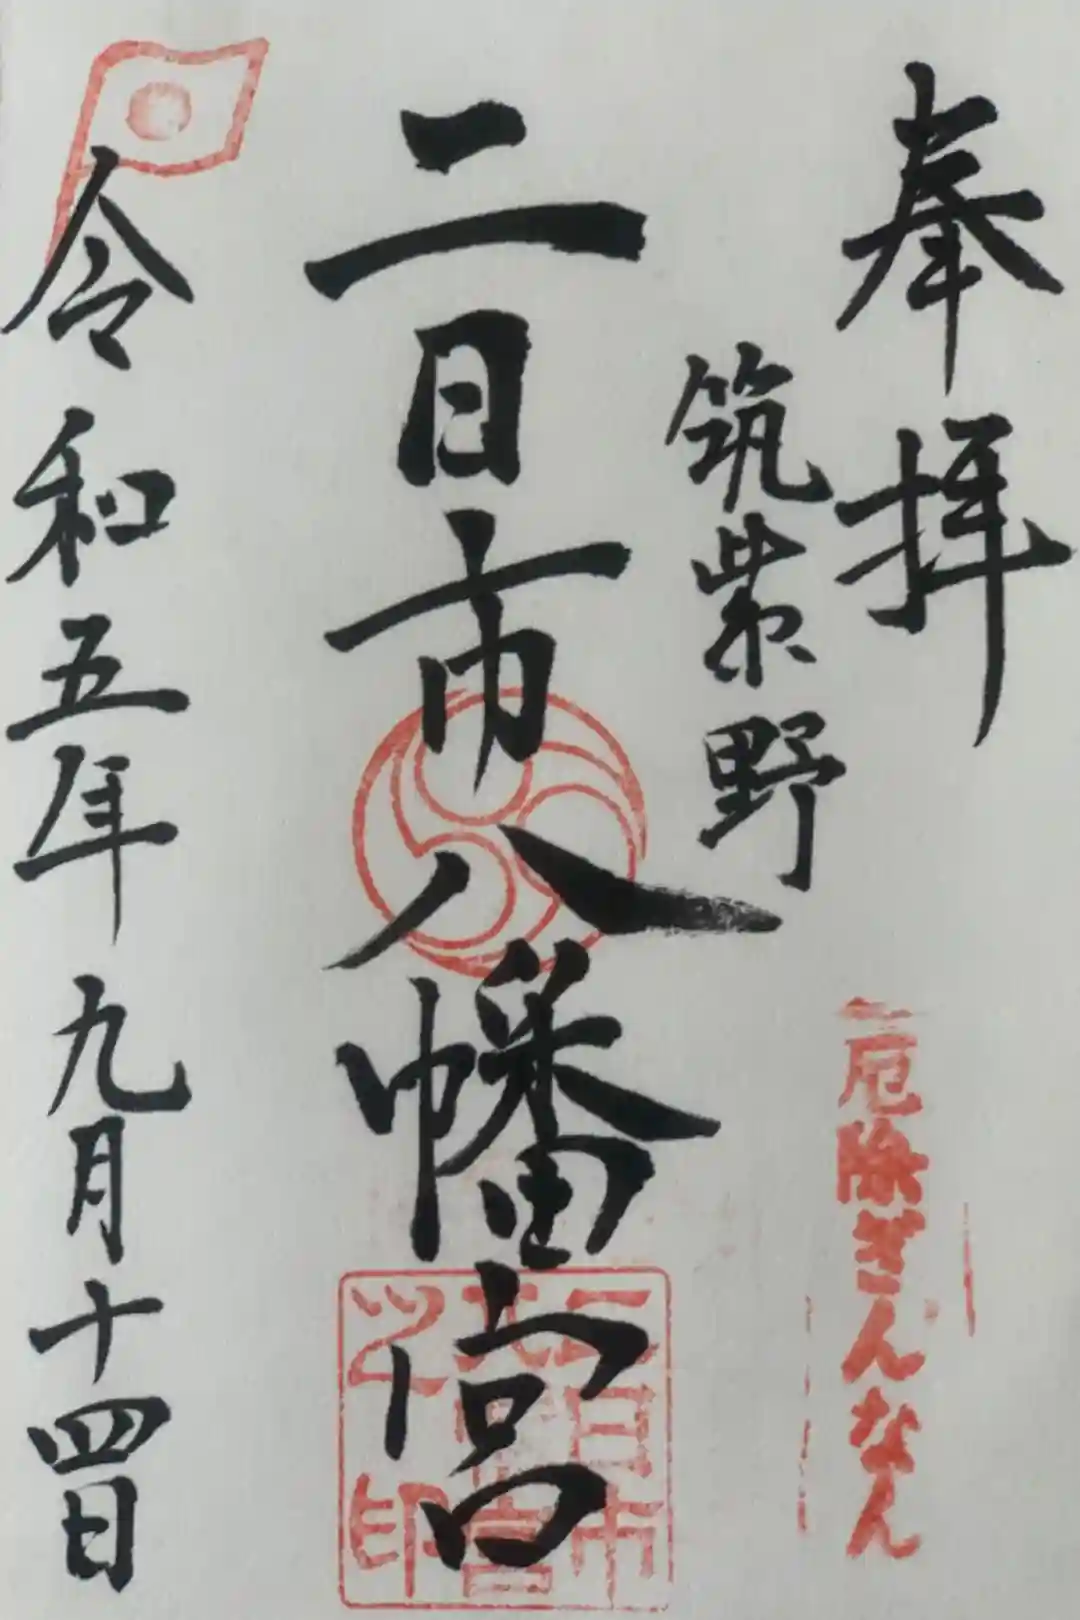 奉拝
筑紫野
厄除ぎんなん
二日市八幡宮
二日市
八幡宮
之印
令和五年九月十四日